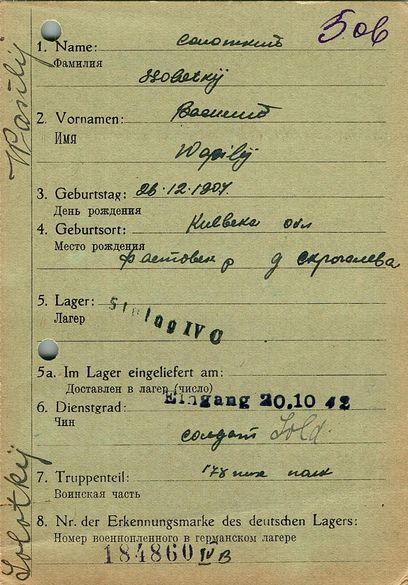 5 ов
1. Name: солоткий
Фамилия
Solotkij
2. Vornamen: Василий
Имя
Waßilij
3. Geburtstag: 26.12.1907.
День рождения
4. Geburtsort: Киевска обл
Место рождения
фастовск р д
5. Lager: Stalag IV C
Лагер
5a. Im Lager eingeliefert am:
Доставлен в лагер (число)
Eingang 20.10 42
6. Dienstgrad:
Чин
солдат Sold.
7. Truppenteil: 178 полк
Воинская часть
8. Nr. der Erkennungsmarke des deutschen Lagers:
Номер военнопленного в германском лагере
184860 IV B
Waßilij
Solotkij